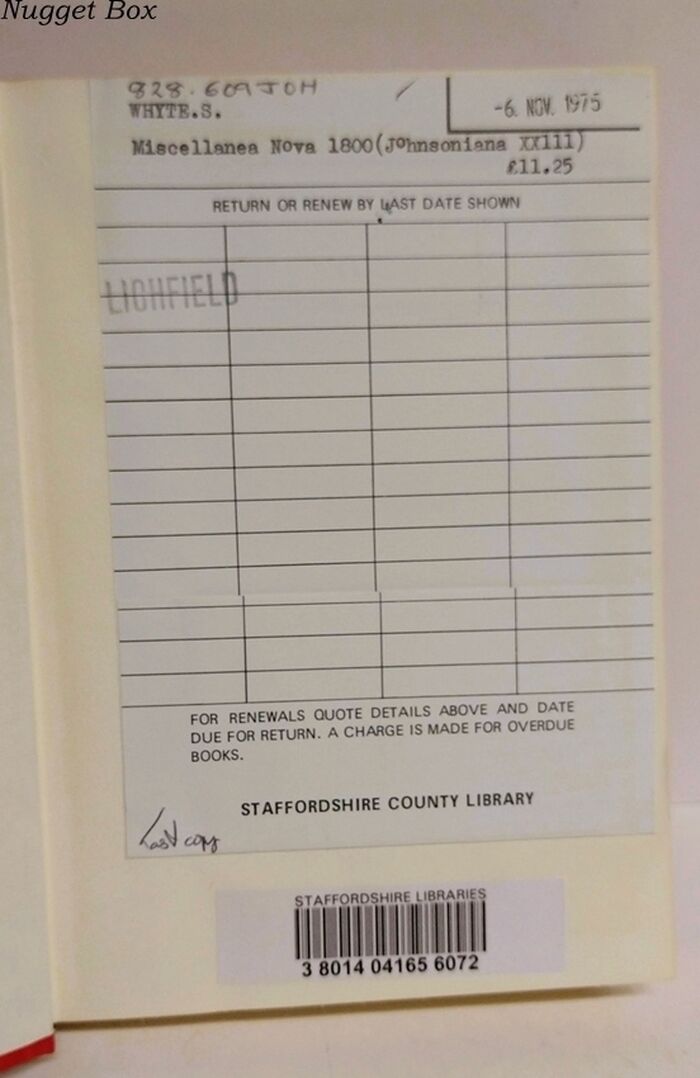 Nugget Box
828.609 JOH
-6. NOV. 1975
WHYTE.S.
Miscellanea Nova 1800(Johnsoniana XX111)
£11.25
RETURN OR RENEW BY LAST DATE SHOWN
LICHFIELD
FOR RENEWALS QUOTE DETAILS ABOVE AND DATE
DUE FOR RETURN. A CHARGE IS MADE FOR OVERDUE
BOOKS.
STAFFORDSHIRE COUNTY LIBRARY
Last copy
STAFFORDSHIRE LIBRARIES
3 8014 04165 6072